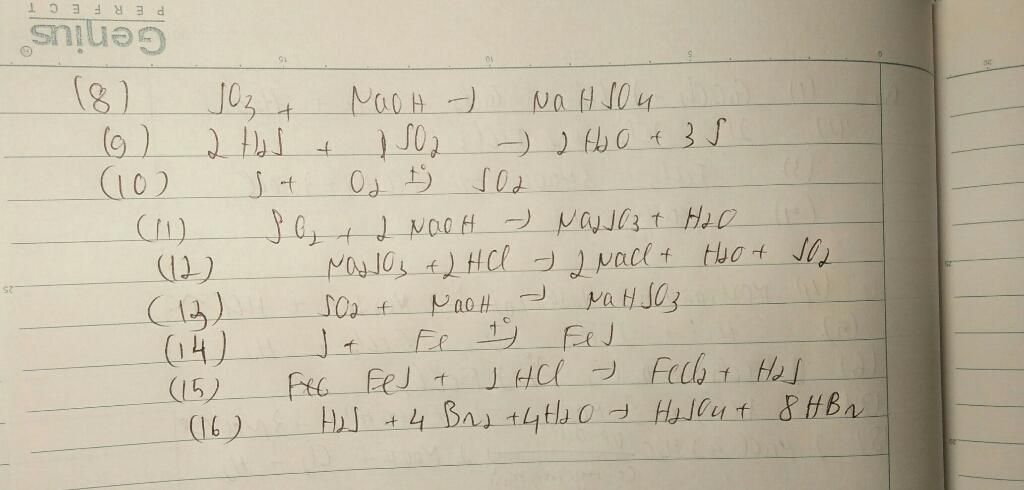 Genius®
PERFECT
(8) SO3 + NaOH → NaHSO4
(9) 2 H2S + 1 SO2 → 2 H2O + 3 S
(10) S + O2 t°→ SO2
(11) SO2 + 2 NaOH → Na2SO3 + H2O
(12) Na2SO3 + 2 HCl → 2 NaCl + H2O + SO2
(13) SO2 + NaOH → NaHSO3
(14) S + Fe t°→ FeS
(15) FeS + 2 HCl → FeCl2 + H2S
(16) H2S + 4 Br2 + 4 H2O → H2SO4 + 8 HBr